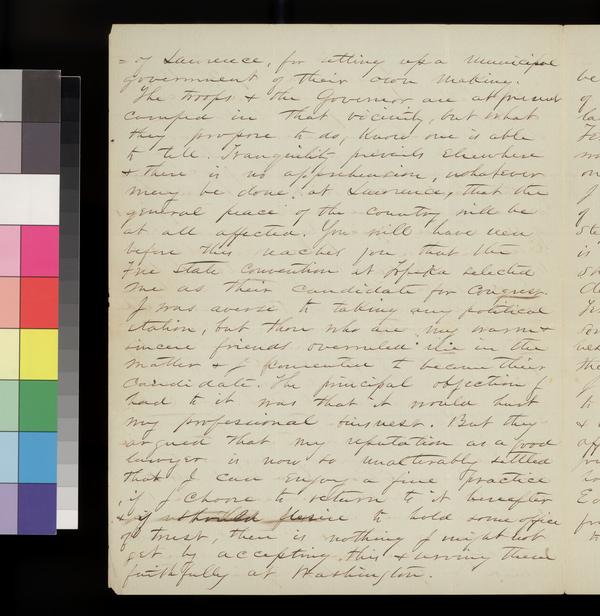 = of Lawrence, for setting up a municipal
government of their own making.
The troops & the Governor are at present
camped in that vicinity, but what
they propose to do, know one is able
to tell. Tranquility prevails elsewhere
& there is no apprehension, whatever
may be done at Lawrence, that the
general peace of the country will be
at all affected. You will have seen
before this reaches you that the
Free State Convention at Topeka selected
me as their candidate for Congress.
I was averse to taking any political
station, but those who are my warm &
sincere friends overruled me in the
matter & I consented to become their
Candidate. The principal objection I
had to it was that it would hurt
my professional business. But they
argued that my reputation as a good
lawyer is now so unalterably settled
that I can enjoy a fine practice
if I choose to return to it hereafter
& if I should desire to hold some office
of trust, there is nothing I might not
get by accepting this & serving them
faithfully at Washington.